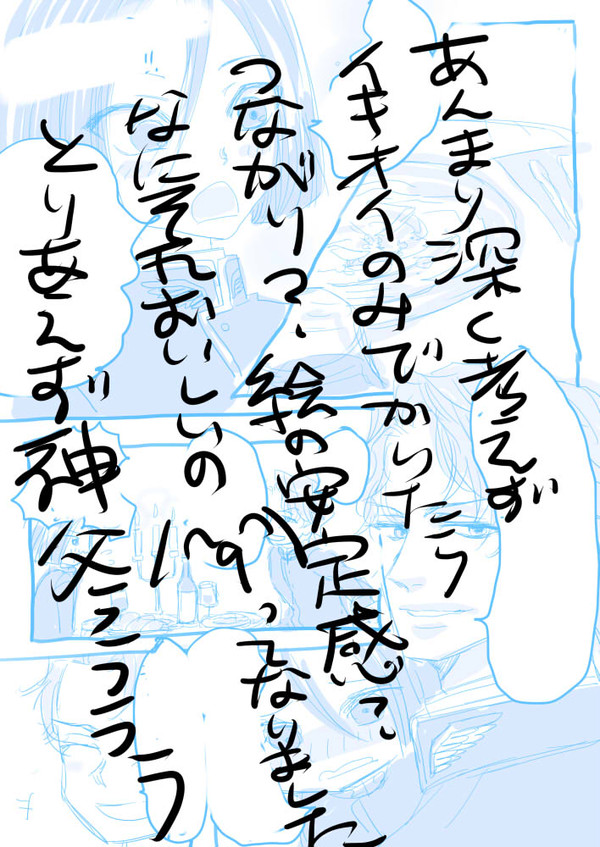 あんまり深く考えず
イキオイのみでかいたら
つながりって、絵の安定感って、
なにそれおいしいの(^q^)ってなりました
とりあえず神父